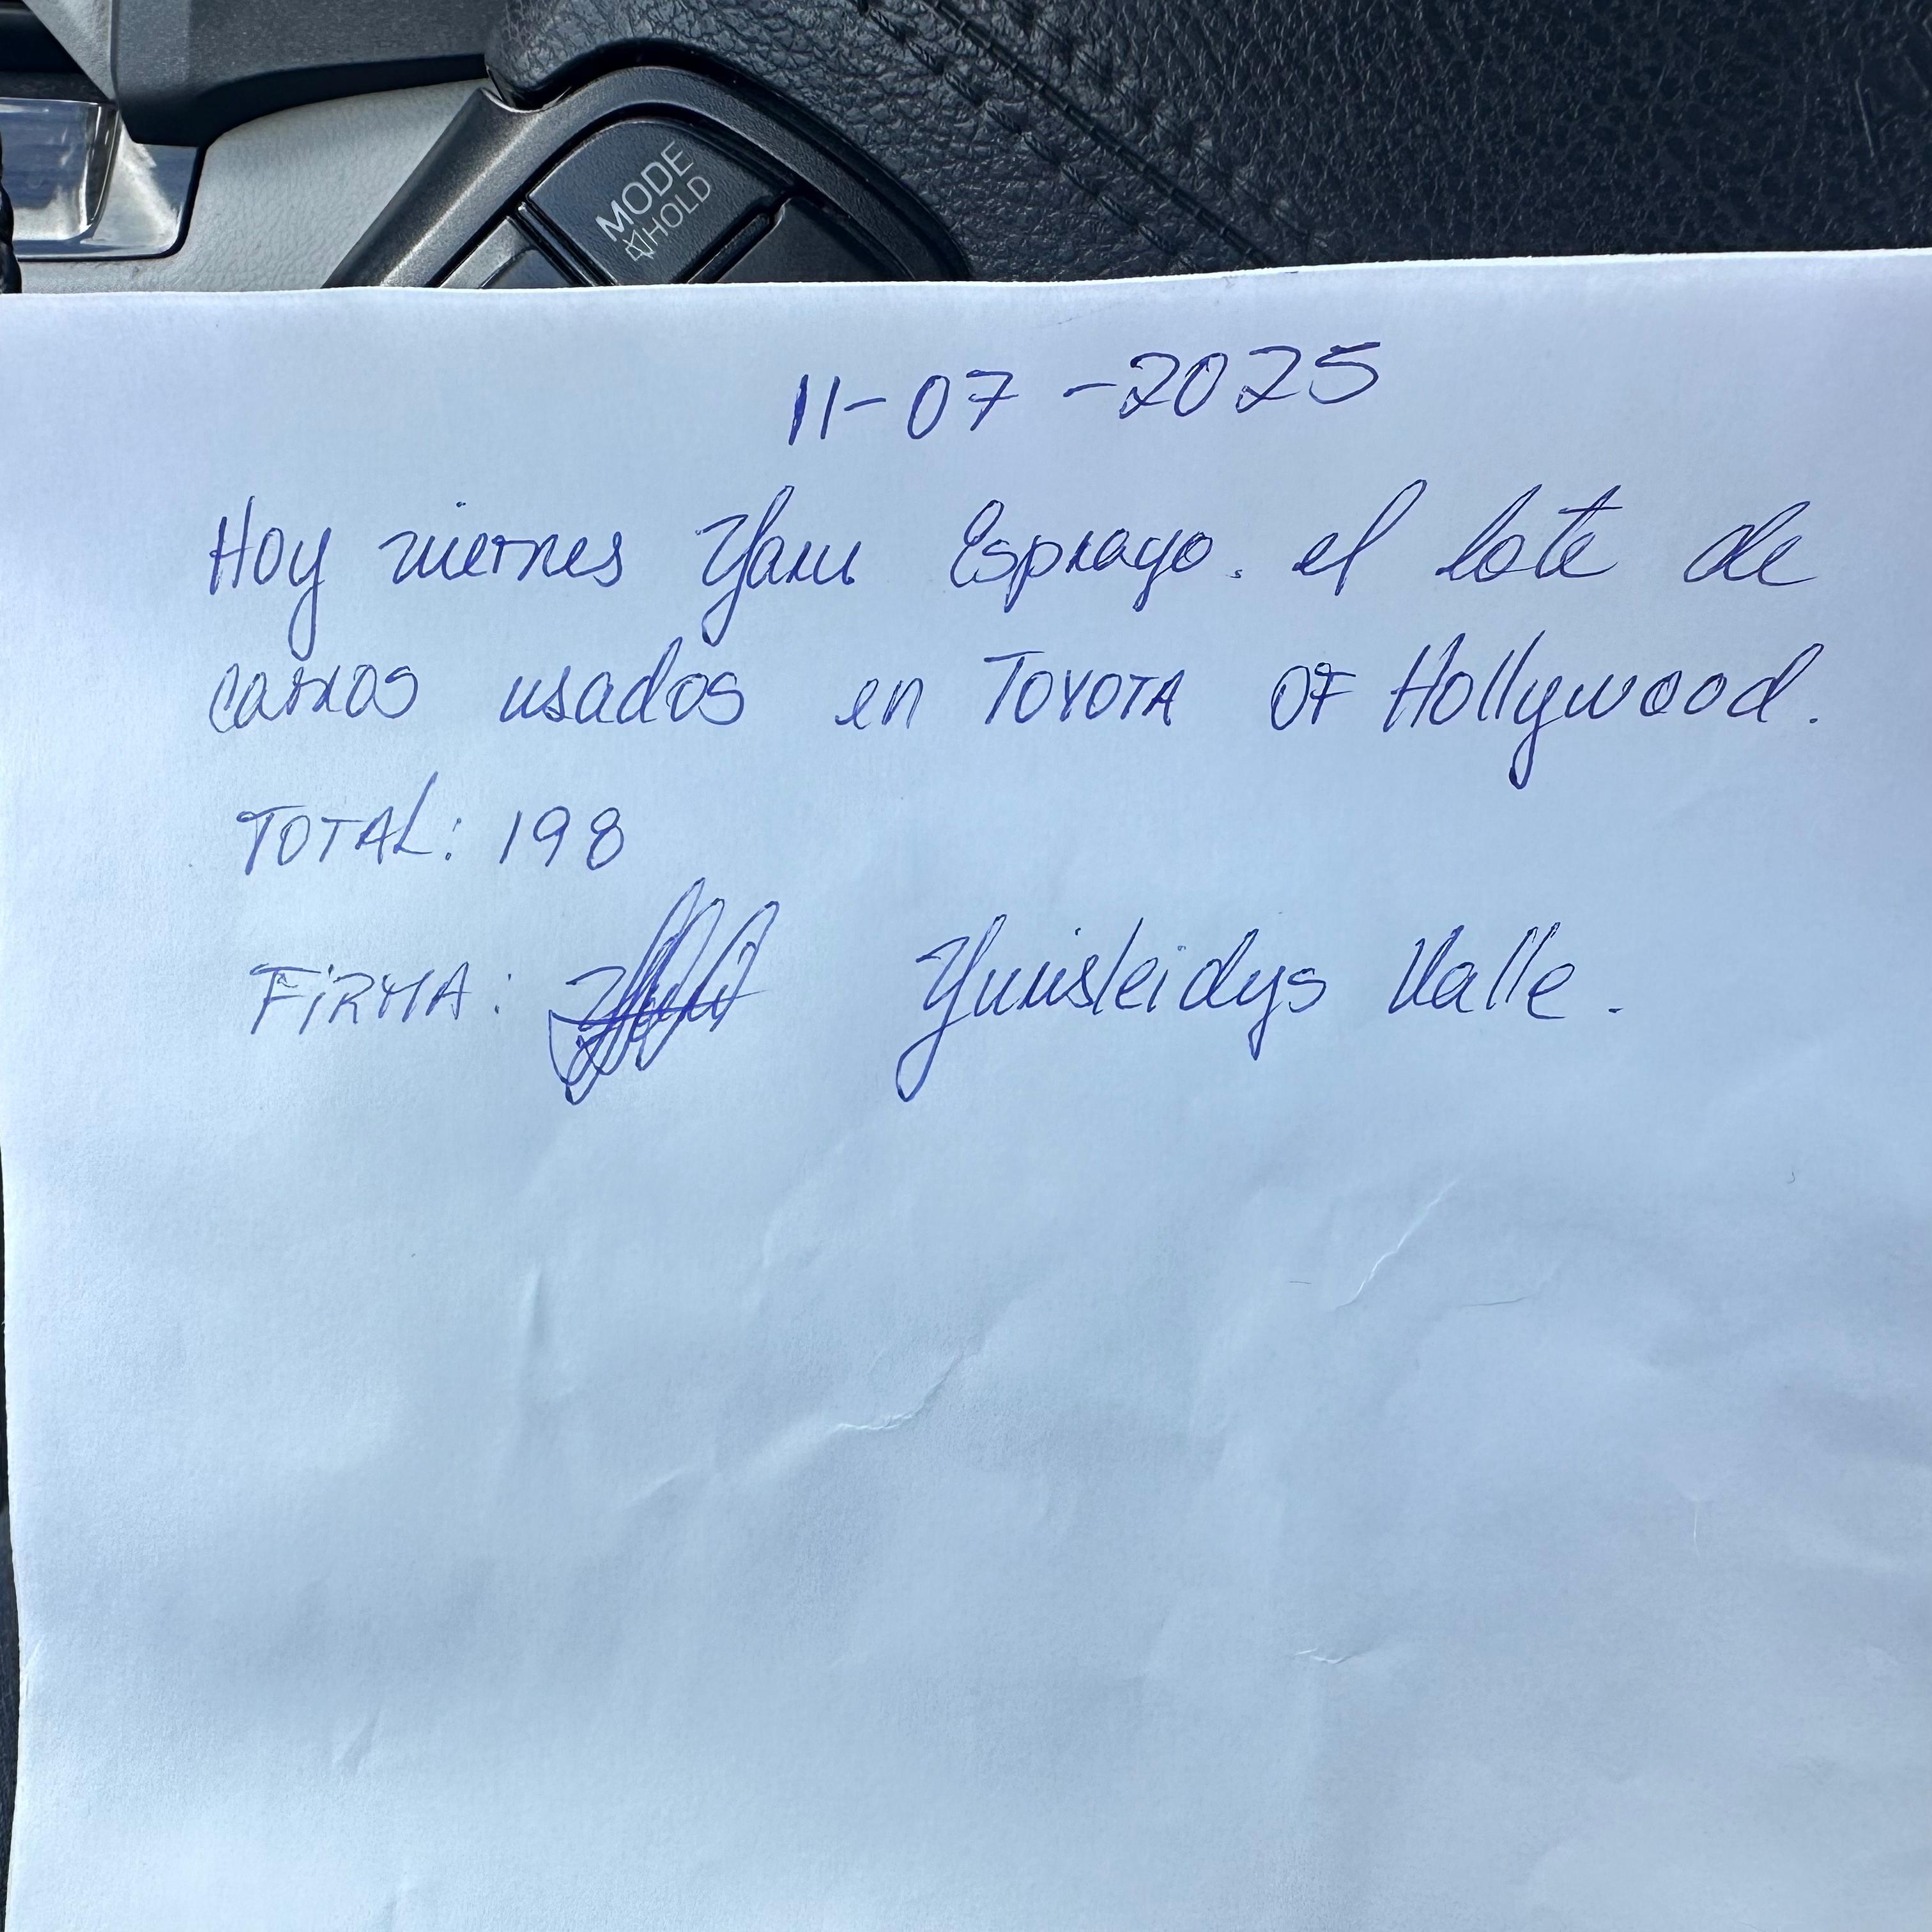 MODE
HOLD
11-07-2025
Hoy viernes Yaru Esprayo. el lote de
carros usados en TOYOTA OF Hollywood.
TOTAL: 198
FiRMA: Yunisleidys Valle.